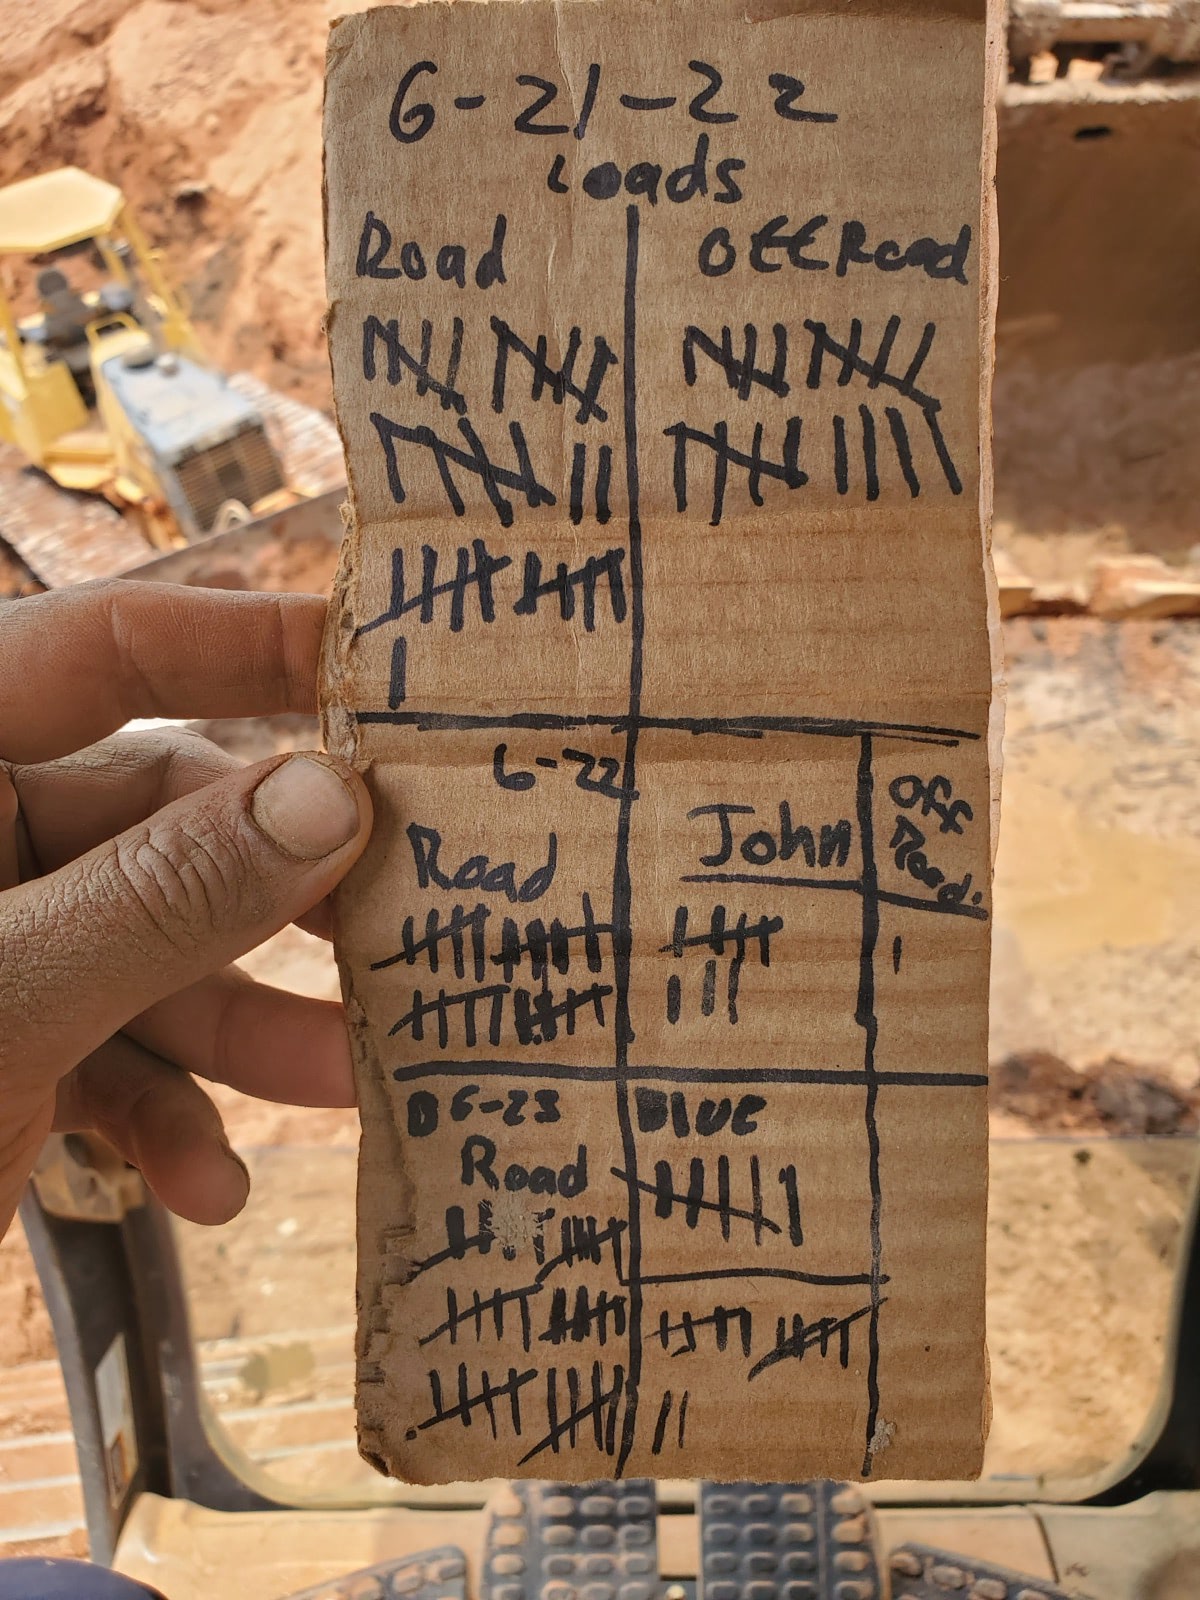 6-21-22
Loads
Road
Off Road
6-22
Road
John
Off Road.
6-23
Road
Blue